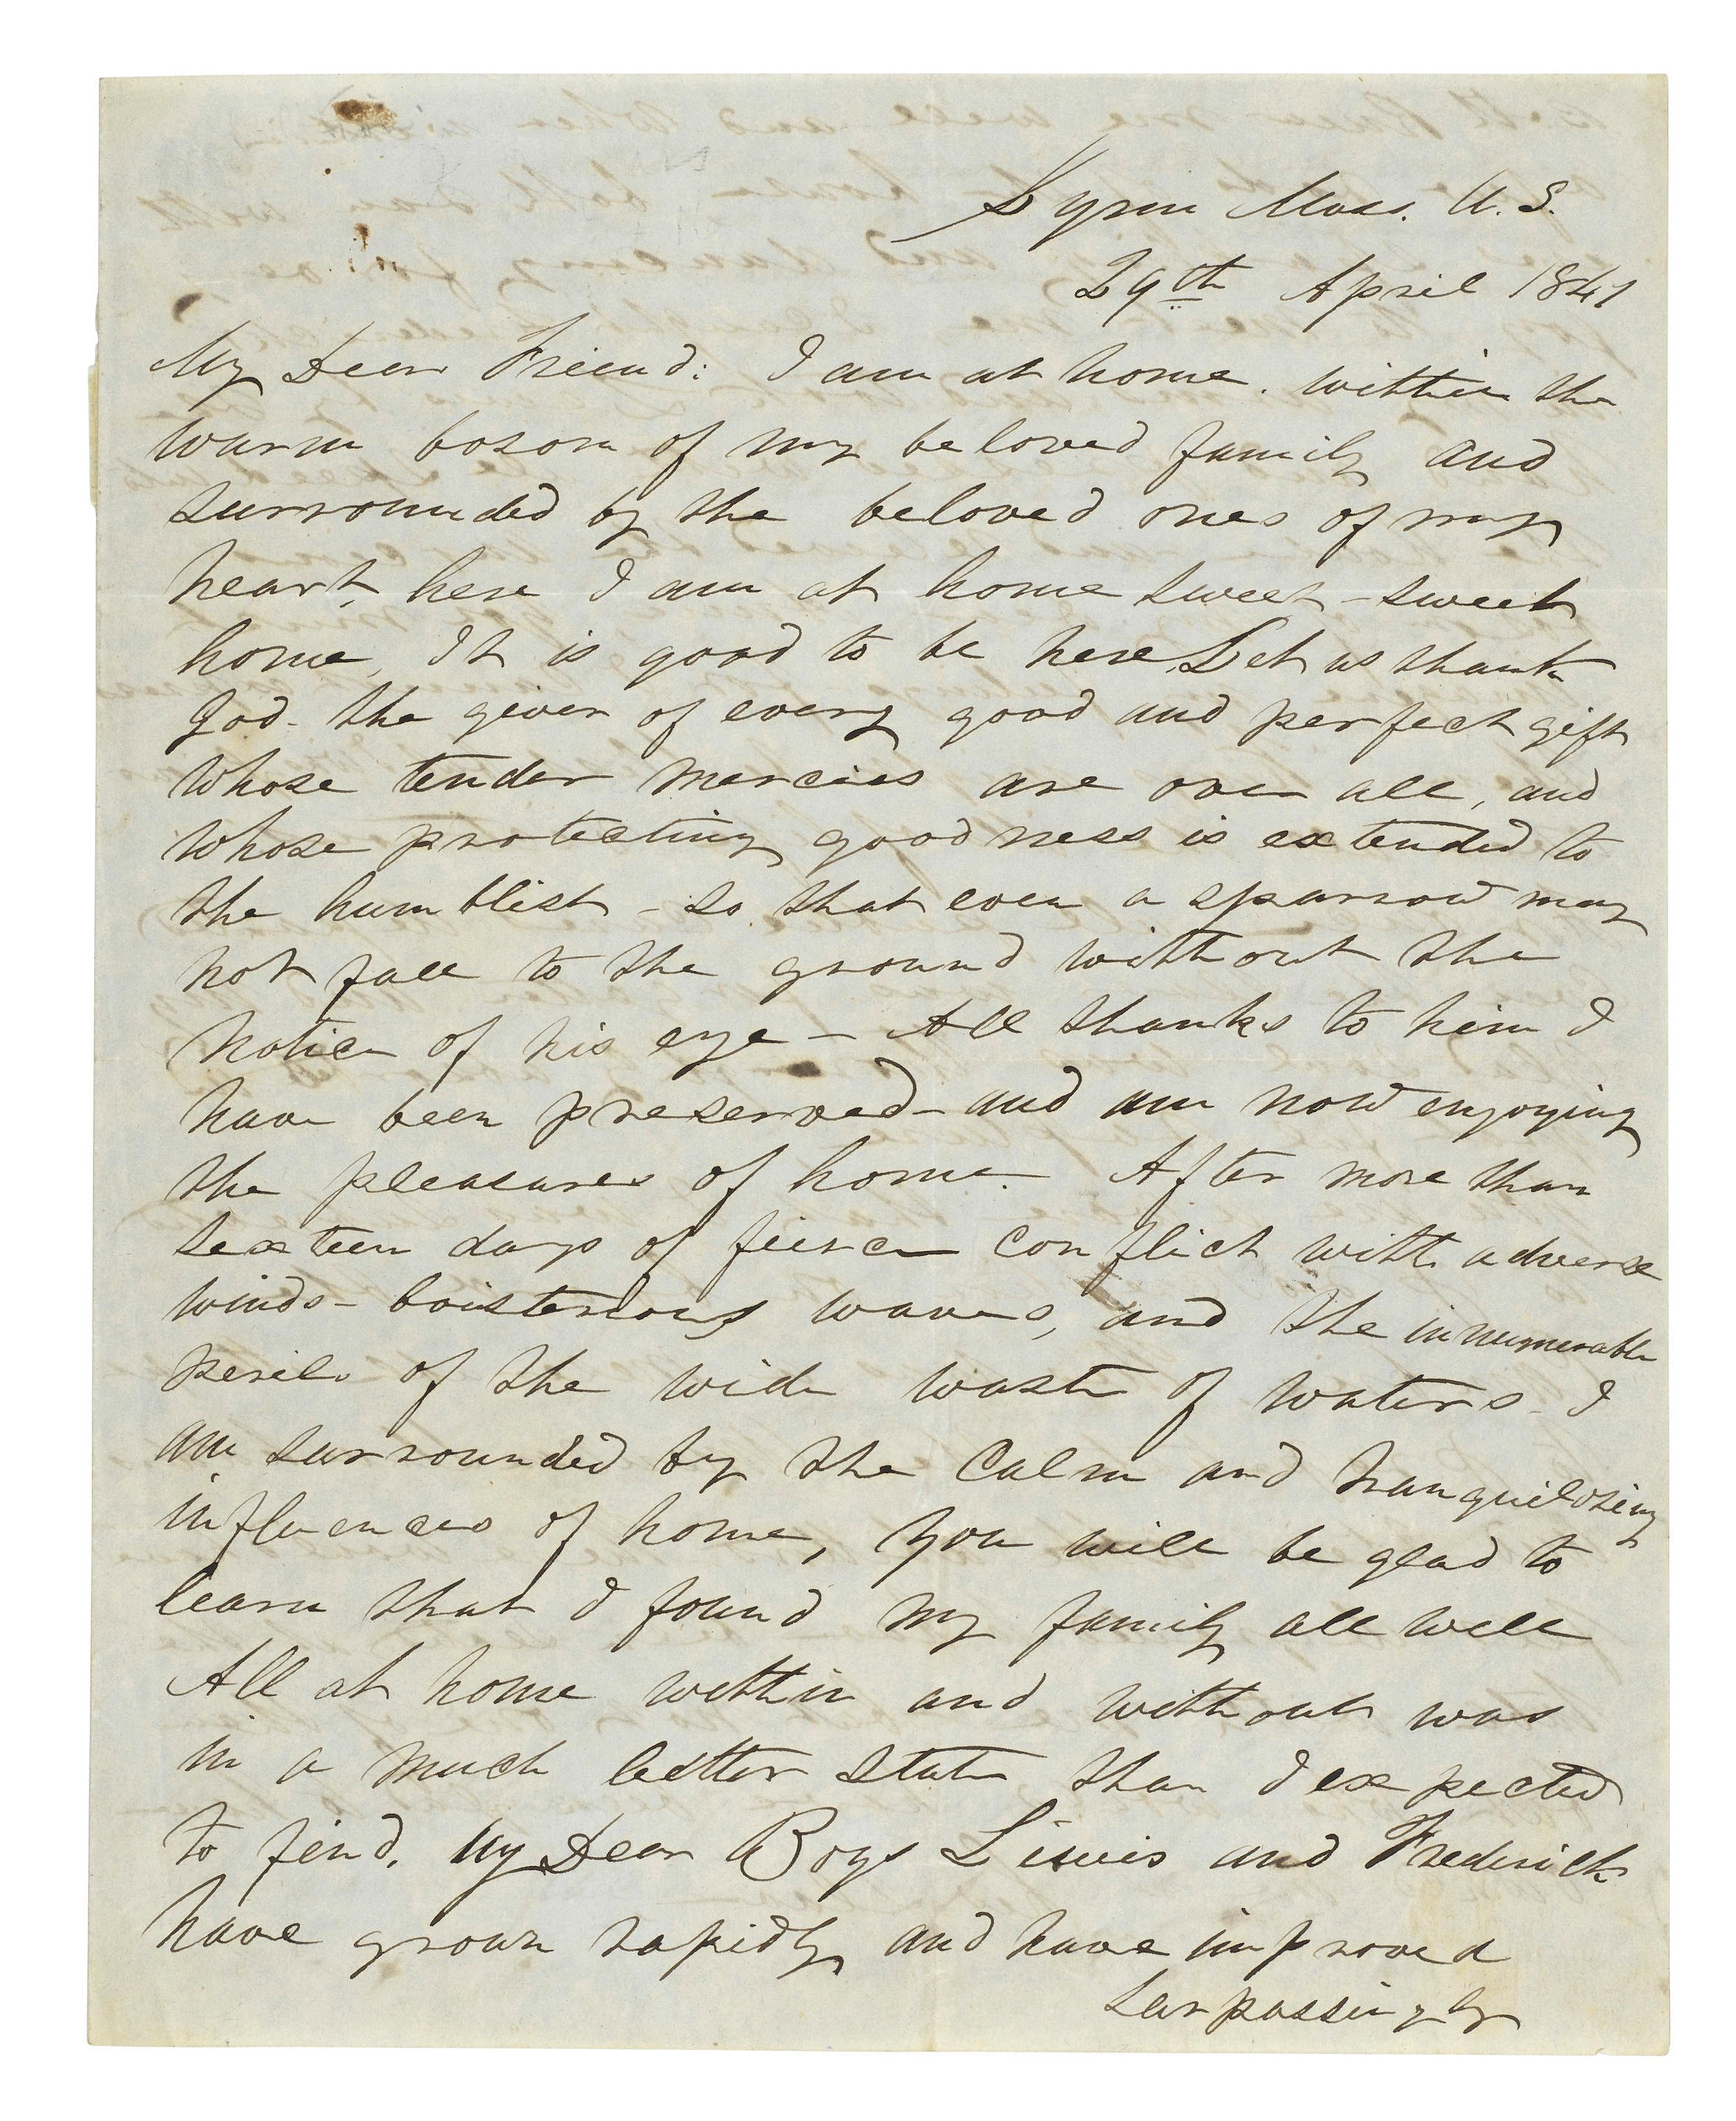 Lynn Mass. U. S.
29th April 1847
My Dear Friend: I am at home. within the
warm bosom of my beloved family and
surrounded by the beloved ones of my
heart, here I am at home sweet - sweet
home, It is good to be here Let us thank
God - the giver of every good and perfect gift
whose tender mercies are over all, and
whose protecting goodness is extended to
the humblist - so that even a sparrow may
not fall to the ground without the
notice of his eye - All thanks to him I
have been preserved - and am now enjoying
the pleasures of home. After more than
sexteen days of fierce conflict with adverse
winds - boisterious waves, and the innumerable
perils of the wide waste of waters - I
am surrounded by the calm and tranquilizing
influences of home, you will be glad to
learn that I found my family all well
All at home within and without was
in a much better state than I expected
to find. My Dear Boys Liewis and Frederick
have grown rapidly and have improved
surpassingly